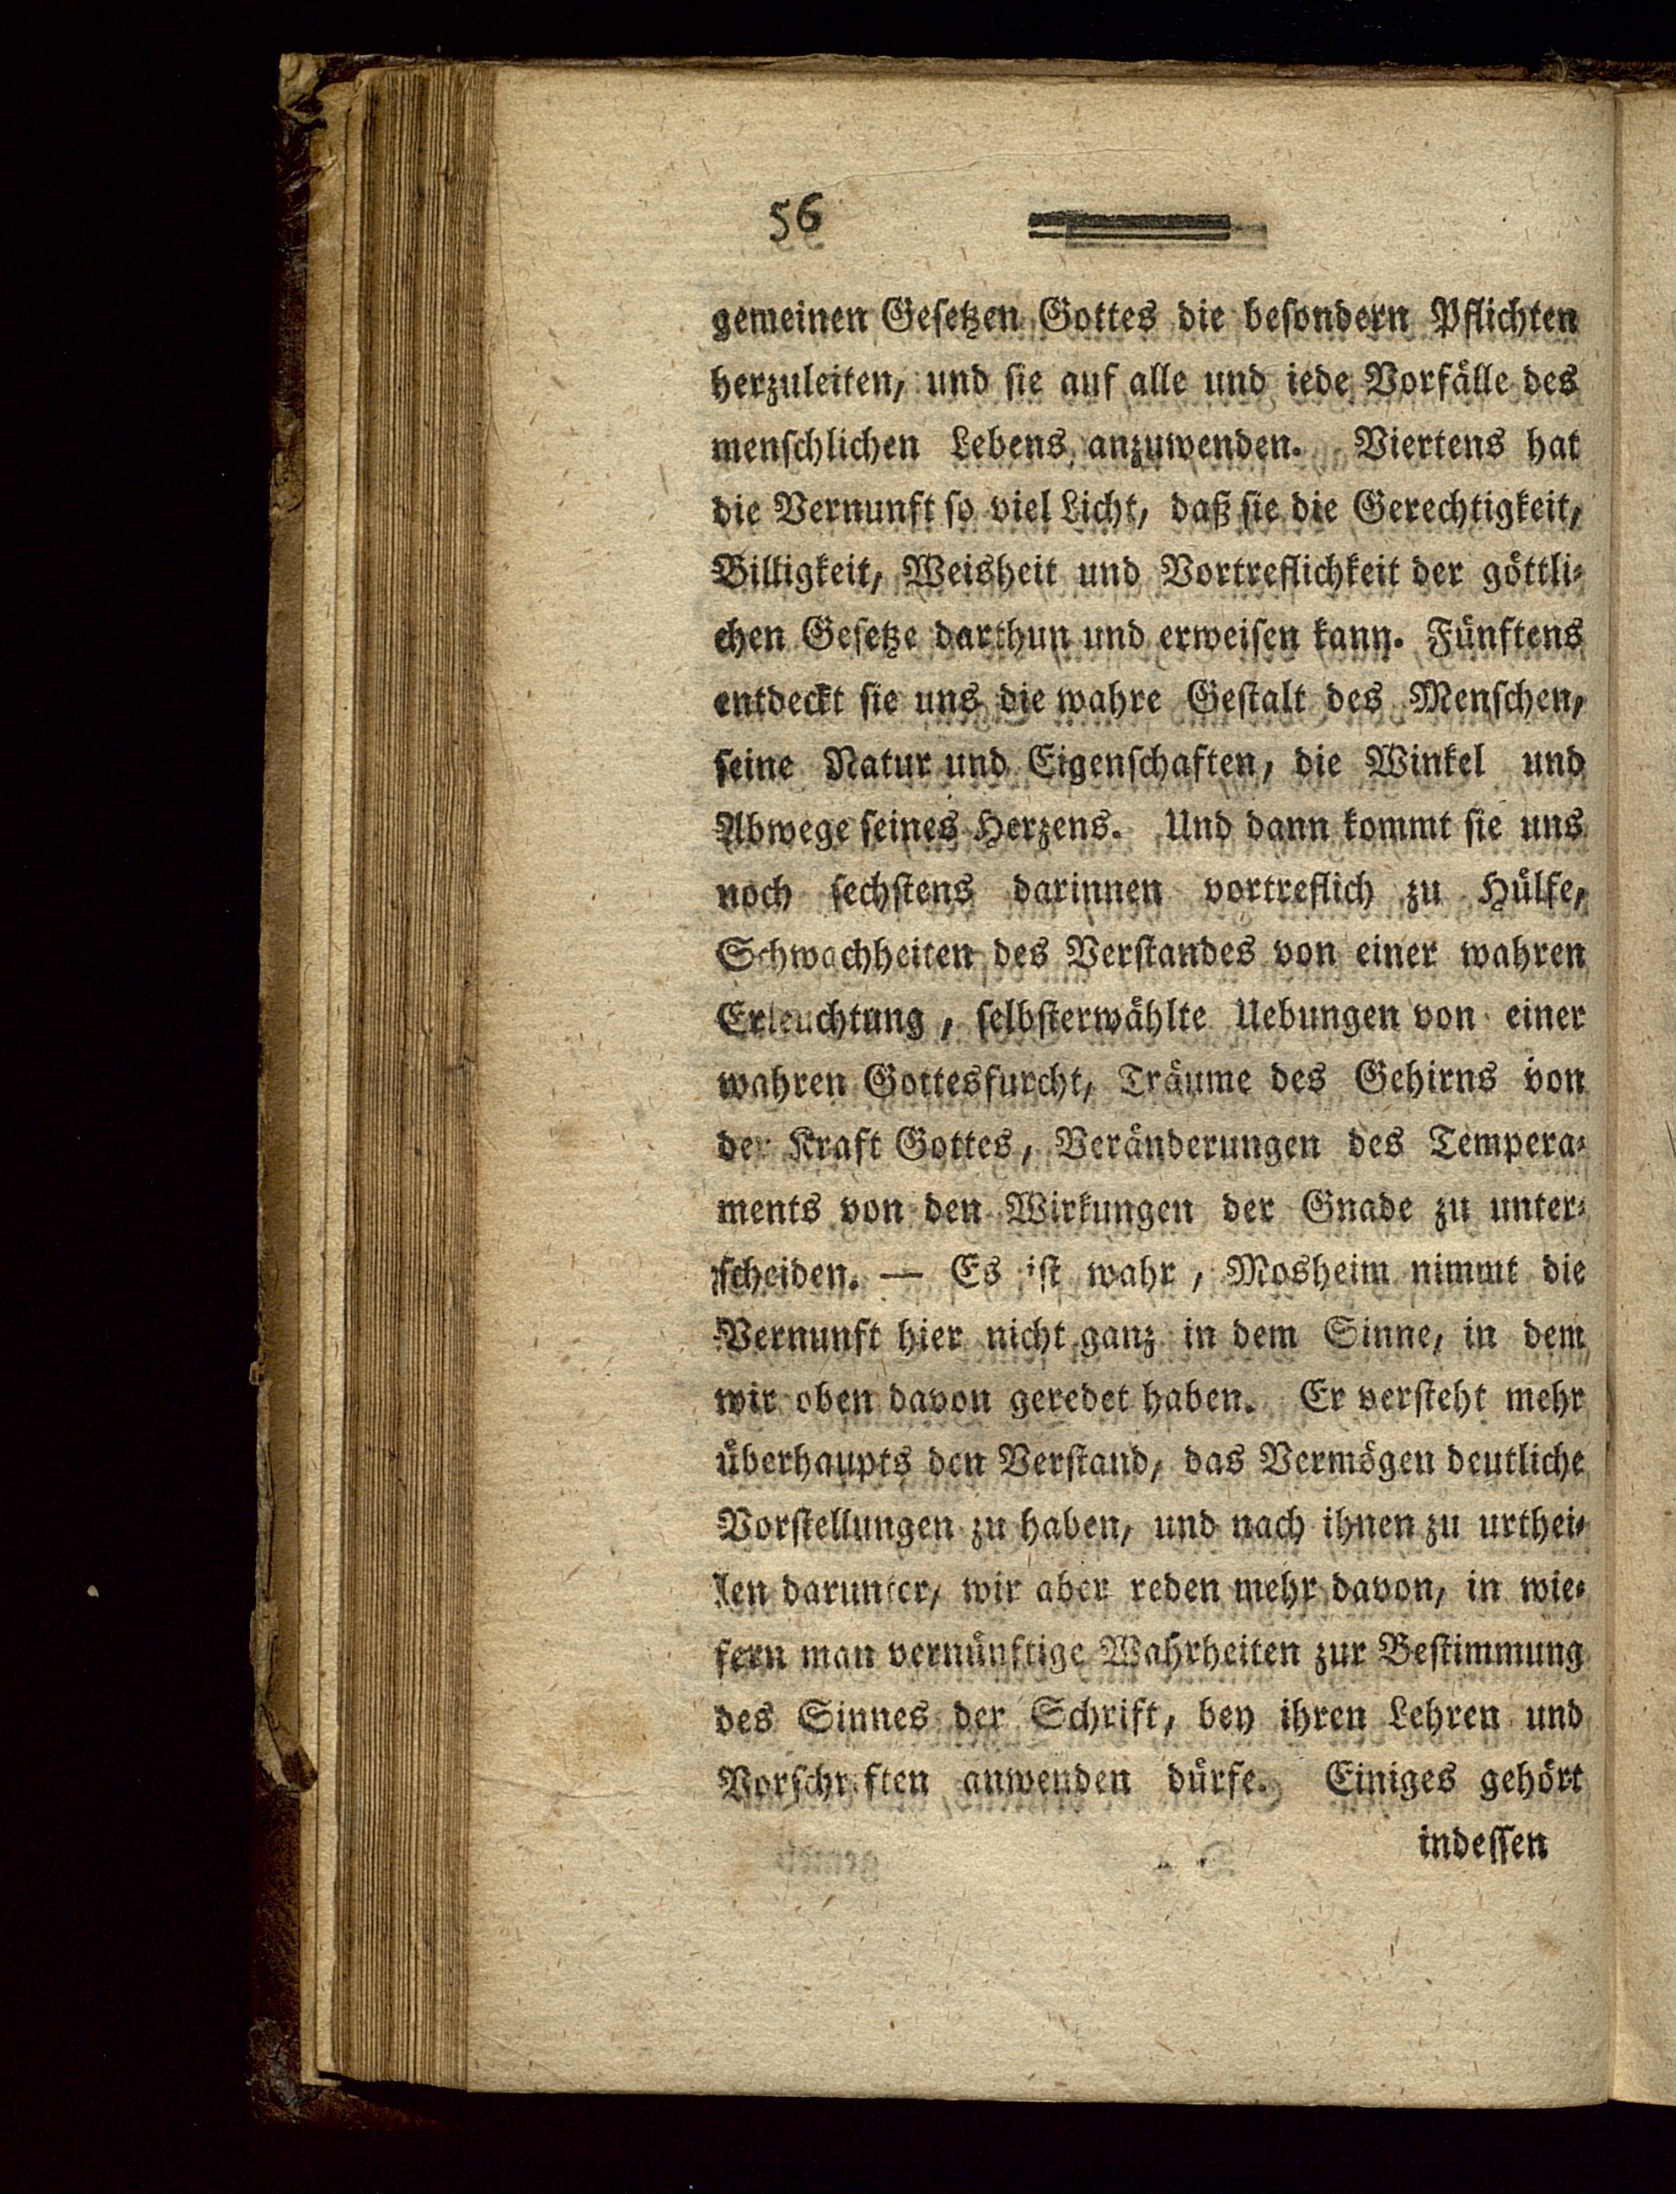 56
gemeinen Gesetzen Gottes die besondern Pflichten
herzuleiten, und sie auf alle und iede Vorfälle des
menschlichen Lebens anzuwenden. Viertens hat
die Vernunft so viel Licht, daß sie die Gerechtigkeit,
Billigkeit, Weisheit und Vortreflichkeit der göttli-
chen Gesetze darthun und erweisen kann. Fünftens
entdeckt sie uns die wahre Gestalt des Menschen,
seine Natur und Eigenschaften, die Winkel und
Abwege seines Herzens. Und dann kommt sie uns
noch sechstens darinnen vortreflich zu Hülfe,
Schwachheiten des Verstandes von einer wahren
Erleuchtung, selbsterwählte Uebungen von einer
wahren Gottesfurcht, Träume des Gehirns von
der Kraft Gottes, Veränderungen des Tempera-
ments von den Wirkungen der Gnade zu unter-
scheiden. — Es ist wahr, Mosheim nimmt die
Vernunft hier nicht ganz in dem Sinne, in dem
wir oben davon geredet haben. Er versteht mehr
überhaupts den Verstand, das Vermögen deutliche
Vorstellungen zu haben, und nach ihnen zu urthei-
len darunter, wir aber reden mehr davon, in wie-
fern man vernünftige Wahrheiten zur Bestimmung
des Sinnes der Schrift, bey ihren Lehren und
Vorschriften anwenden dürfe. Einiges gehört
indessen